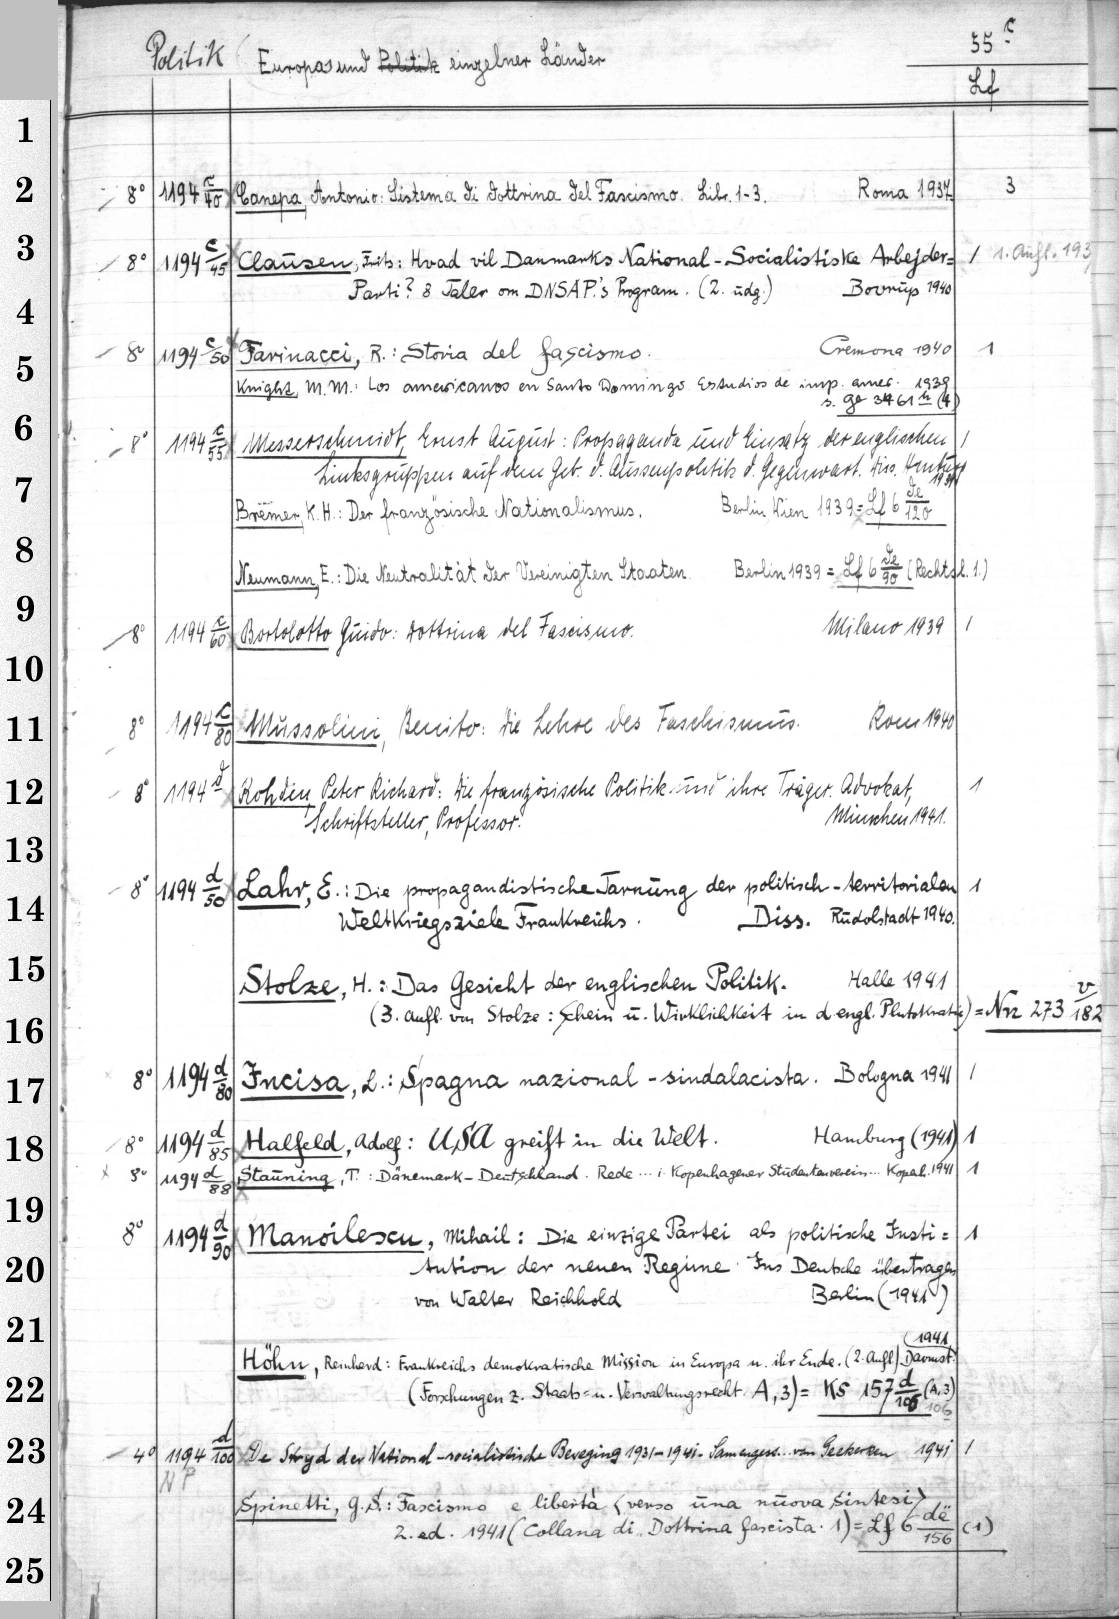 Politik Europas und Politik einzelner Länder 55 c
Lf
1
2 8° 1194 c/40 Canepa, Antonio: Sistema di dottrina del Fascismo. Libr. 1-3. Roma 1937 3
3 8° 1194 c/45 Clausen, Frits: Hvad vil Danmarks National-Socialistiske Arbejder= 1 1. Aufl. 193
4 Parti? 8 Taler om DNSAP.'s Program. (2. udg.) Bovrup 1940
5 8° 1194 c/50 Farinacci, R.: Storia del fascismo. Cremona 1940 1
Knight, M.M.: Los americanos en Santo Domingo. Estudios de imp. amer. 1939
s. Ge 3461 h (4)
6 8° 1194 c/55 Messerschmidt, Ernst August: Propaganda und Einsatz der englischen 1
Linksgruppen auf dem Geb. d. Aussenpolitik d. Gegenwart. Diss. Hamburg
1939
7 Bremer, K.H.: Der französische Nationalismus. Berlin Wien 1939 = Lf 6 de/120
8 Neumann, E.: Die Neutralität der Vereinigten Staaten. Berlin 1939 = Lf 6 de/90 (Rechtsl. 1.)
9 8° 1194 c/60 Bortolotto Guido: Dottrina del Fascismo. Milano 1939 1
10
11 8° 1194 c/80 Mussolini, Benito: Die Lehre des Faschismus. Rom 1940
12 8° 1194 d Rohden, Peter Richard: Die französische Politik und ihre Träger. Advokat, 1
Schriftsteller, Professor. München 1941.
13
14 8° 1194 d/50 Lahr, E.: Die propagandistische Tarnung der politisch-territorialen 1
Weltkriegsziele Frankreichs. Diss. Rudolstadt 1940.
15 Stolze, H.: Das Gesicht der englischen Politik. Halle 1941
16 (3. Aufl. von Stolze: Schein u. Wirklichkeit in d. engl. Plutokratie) = Nrz 273 v/182
17 8° 1194 d/80 Incisa, L.: Spagna nazional-sindalacista. Bologna 1941 1
18 8° 1194 d/85 Halfeld, Adolf: USA greift in die Welt. Hamburg (1941) 1
8° 1194 d/88 Stauning, T.: Dänemark-Deutschland. Rede ... i. Kopenhagener Studentenverein ... Kopenh. 1941 1
19 8° 1194 d/90 Manoilescu, Mihail: Die einzige Partei als politische Insti= 1
20 tution der neuen Regime. Ins Deutsche übertragen
von Walter Reichhold Berlin (1941)
21 (1941
Höhn, Reinhard: Frankreichs demokratische Mission in Europa u. ihr Ende. (2. Aufl.) Darmst.
22 (Forschungen z. Staats- u. Verwaltungsrecht. A, 3) = Ks 157 d/106 (A, 3)
106
23 4° 1194 d/100 De Stryd der National-socialistische Beweging 1931-1941. Samengest. van 1941 1
NP
24 Spinetti, G.S.: Fascismo e libertà (verso una nuova sintesi)
2. ed. 1941 (Collana di Dottrina fascista. 1) = Lf 6 dë/156 (1)
25